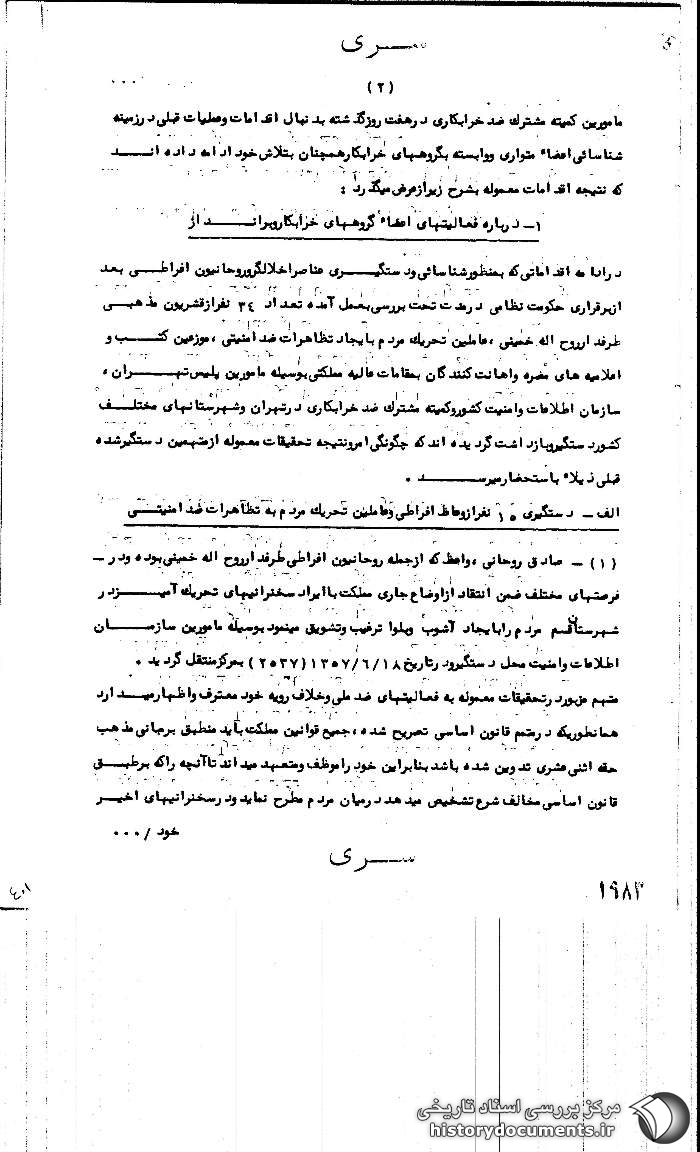 سری
(۲)
مامورین کمیته مشترك ضد خرابکاری در هفت روز گذشته بدنبال اقدامات وعملیات قبلی در زمینه
شناسائی اعضاء متواری ووابسته بگروههای خرابکار همچنان بتلاش خود ادامه داده انـــد
که نتیجه اقدامات معموله بشرح زیر از عرض میگذرد :
۱- درباره فعالیتهای اعضاء گروههای خرابکار وبرانـــداز
در ادامه اقداماتی که بمنظور شناسائی ودستگیــری عناصر اخلالگر وروحانیون افراطی بعد
از برقراری حکومت نظامی در مدت تحت بررسی بعمل آمده تعداد ۳٤ نفر از قشریون مذهبــی
طرفدار روح اله خمینی ، عاملین تحریك مردم بایجاد تظاهرات ضد امنیتی ، موزعین کتــب و
اعلامیه های مضره واهانت کنندگان بمقامات عالیه مملکتی بوسیله مامورین پلیس تهــران ،
سازمان اطلاعات وامنیت کشور وکمیته مشترك ضد خرابکاری در تهران وشهرستانهای مختلــف
کشور دستگیر وبازداشت گردیده اند که چگونگی امر ونتیجه تحقیقات معموله از متهمین دستگیر شده
قبلی ذیلا" باستحضار میرســـد .
الف - دستگیری ۱۰ نفر از وعاظ افراطی وعاملین تحریك مردم به تظاهرات ضد امنیتــی
(۱) - صادق روحانی ، واعظ که از جمله روحانیون افراطی طرفدار روح اله خمینی بوده ودر -
فرصتهای مختلف ضمن انتقاد از اوضاع جاری مملکت با ایراد سخنرانیهای تحریك آمیــز در
شهرستان قــم مردم را بایجاد آشوب وبلوا ترغیب وتشویق مینمود بوسیله مامورین سازمــان
اطلاعات وامنیت محل دستگیر ودر تاریخ ۱۳۵۷/٦/۱۸ (۲۵۳۷) بمرکز منتقل گردید .
متهم مزبور در تحقیقات معموله به فعالیتهای ضد ملی وخلاف رویه خود معترف واظهار میــدارد
همانطوریکه در متمم قانون اساسی تصریح شده ، جمیع قوانین مملکت باید منطبق بر مبانی مذهب
حقه اثنی عشری تدوین شده باشد بنابراین خود را موظف ومتعهد میداند تا آنچه را که بر طبــق
قانون اساسی مخالف شرع تشخیص میدهد در میان مردم مطرح نماید ودر سخنرانیهای اخیــر
خود / ۰۰۰
سری
۱۹۸۳
٤۰۱
مرکز بررسی اسناد تاریخی
historydocuments.ir